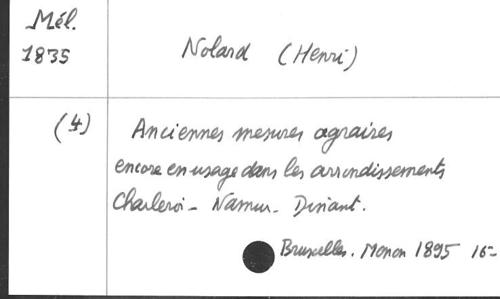 Mél.
1835
Nolard (Henri)
(4)
Anciennes mesures agraires
encore en usage dans les arrondissements
Charleroi - Namur - Dinant.
Bruxelles. Monon 1895 16-